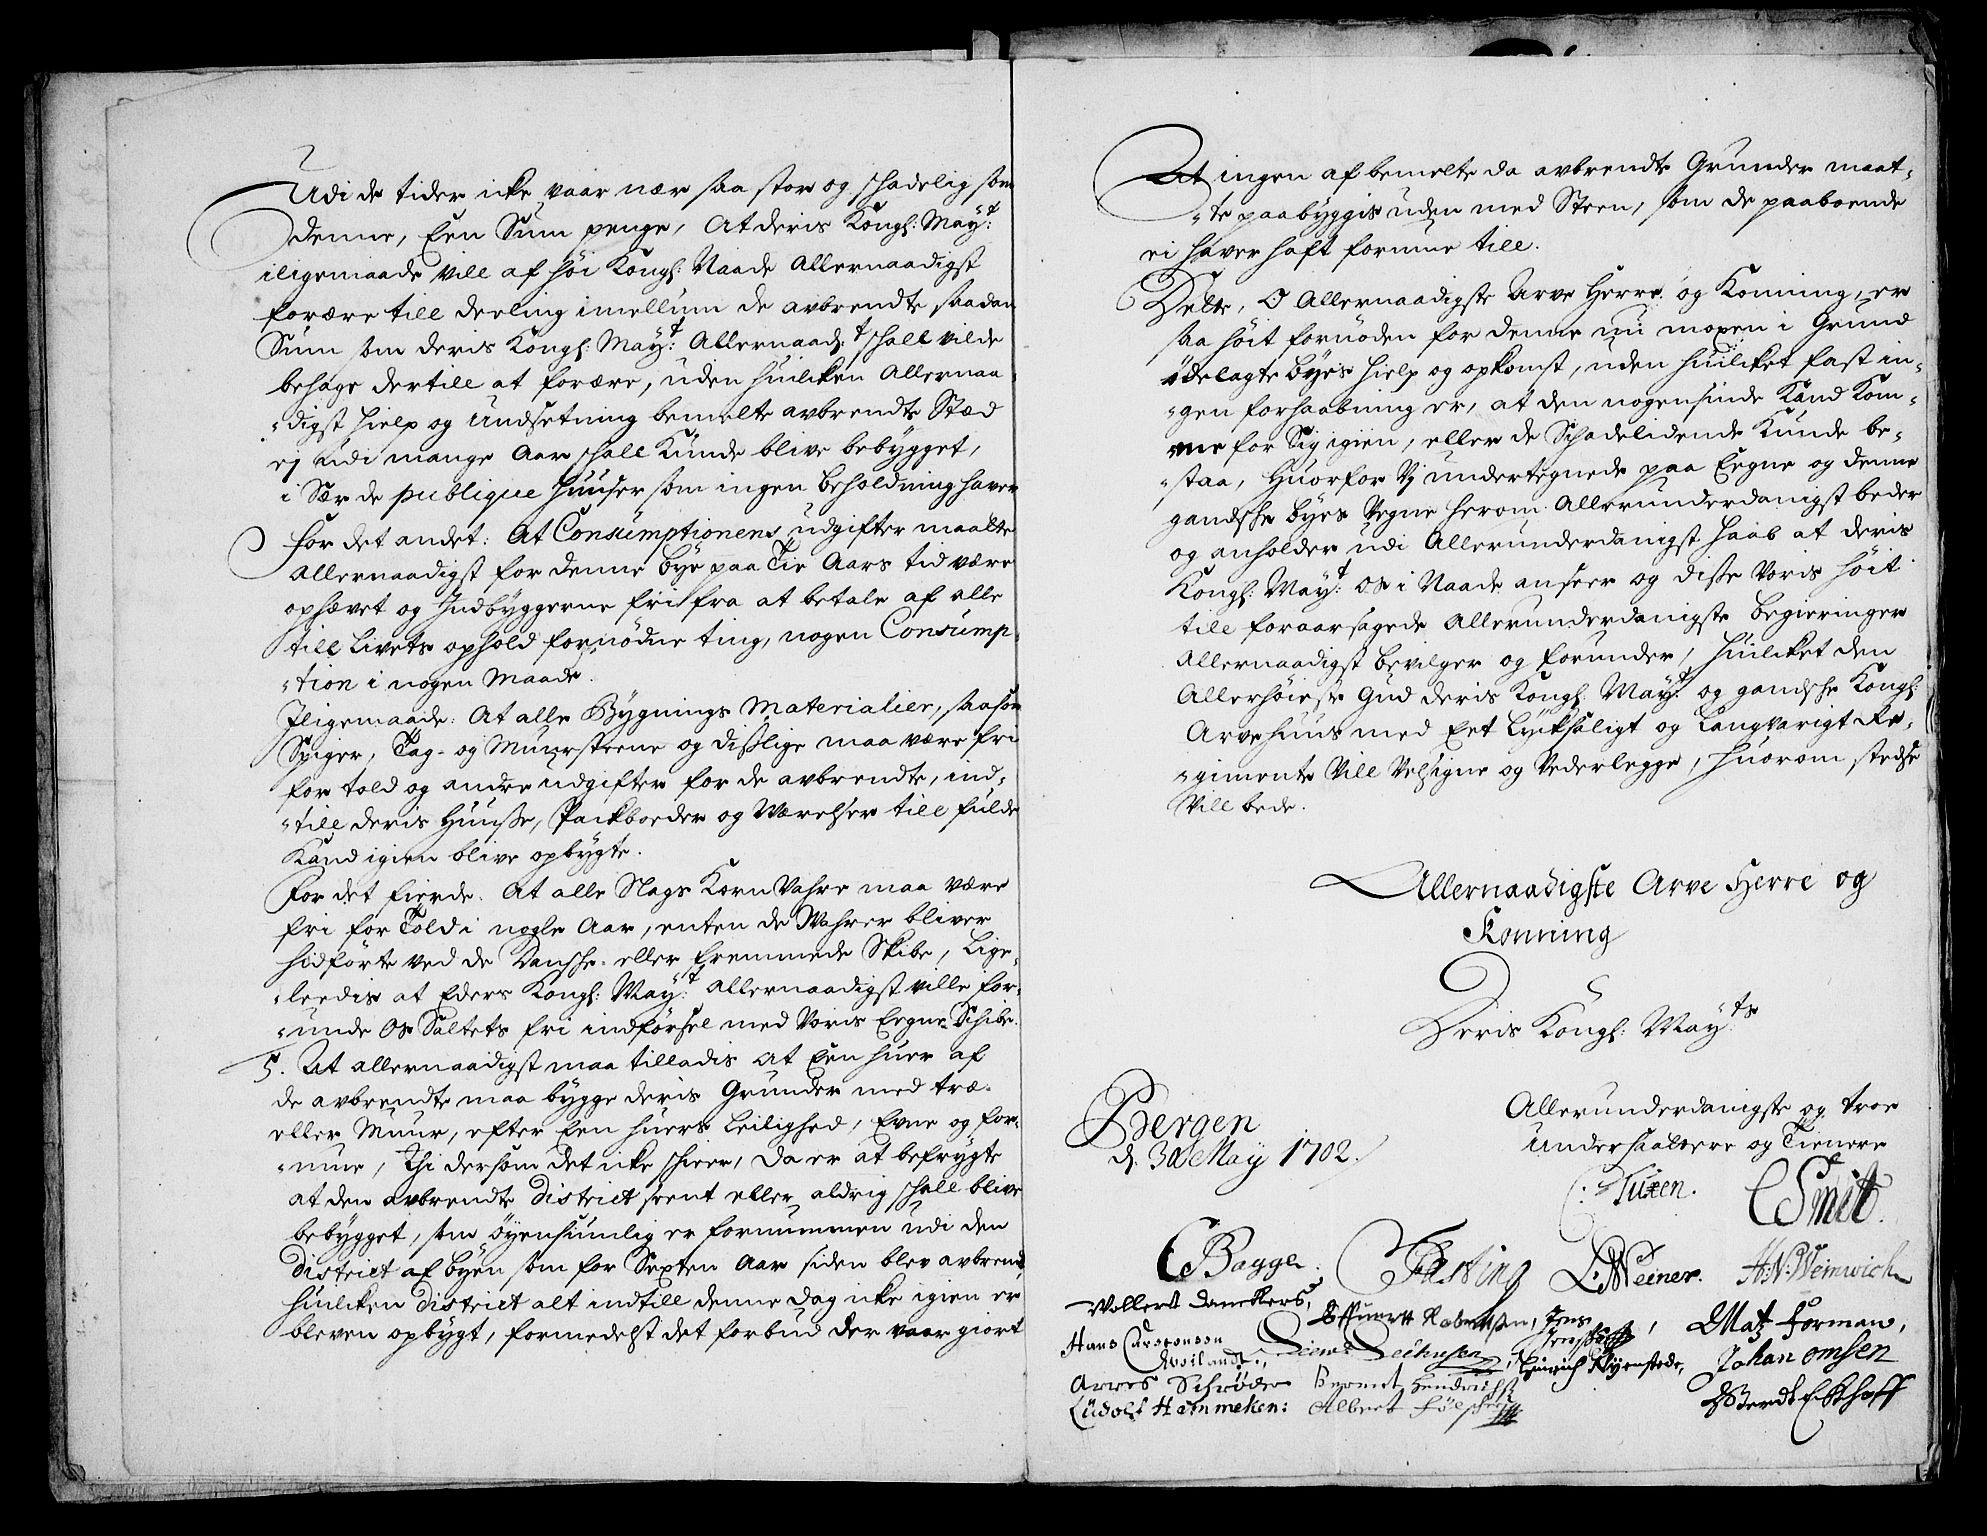 Udi de tider icke vaar nær saa stor og schadelig som
denne, Een Sum penge, At deris Kongl: May:t
iligemaade vill af høi Kongl: Naade Allernaadigst
forære till deeling imellum de avbrendte saadan
Sum som deris Kongl: May:t Allernaad:t schall vilde
behage dertill at forære, uden huilcken Allernaa-
digst hielp og Undsetning bemelte avbrendte Stæd
ej udi mange Aar schall Kunde blive bebygget,
i Sær de publique Huuser som ingen beholdning haver
For det andet: At Consumptionens udgifter maatte
Allernaadigst for denne bye paa Tie Aars tid være
ophævet og Indbyggerne fri fra at betale af alle
till Livets ophold fornødne ting, nogen Consump-
tion i nogen Maade.
Iligemaade: At alle Bygnings Materialier, saasom
Spiger, Tag- og Muursteene og dislige maa være fri
for told og andre udgifter for de avbrendte, ind-
till deris Huusse, Packboeder og Værelser till fulde
Kand igien blive opbygte.
For det fierde. At alle Slags Korn Vahre maa være
fri for Told i nogle Aar, enten de Wahrer bliver
hidførte ved de Dansche eller fremmede Skibe, Lige-
leedis at Eders Kongl: May:t allernaadigst ville for-
unde Os Saltets fri indførsel med Voris Eegne Schibe.
5. At allernaadigst maa tilladis at Een huer af
de avbrendte maa bygge deris Grunder med træ
eller Muur, efter Een huers Leilighed, Evne og for-
mue, Thi dersom det icke scheer, da er at befrygte
at den avbrendte District seent eller aldrig schall blive
bebygget, som øyensiunlig er fornummen udi den
District af byen som for Sexten Aar siden blev avbrend,
huilcken District alt indtill denne dag icke igien er
bleven opbygt, formedelst det forbud der vaar giort
At ingen af bemelte da avbrendte Grunder maat-
te paabyggis uden med Steen, som de paaboende
ei haver haft formue till.
Dette, O Allernaadigste Arve Herre og Konning, er
saa høit fornøden for denne nu moxen i Grund
ødelagte byes hielp og opkomst, uden huilcket fast in-
gen forhaabning er, at den nogensinde Kand Kom-
me for Sig igien, eller de Schadelidende Kunde be-
staa, Huorfor Vj undertegnede paa Eegne og denne
gandsche byes Vegne herom Allerunderdanigst beder
og anholder udi Allerunderdanigst haab at deris
Kongl: May:t os i Naade anseer og disse Voris høit
till foraarsagede Allerunderdanigste begieringer
Allernaadigst bevilger og forunder, huilcket den
Allerhøieste Gud deris Kongl: May:t og gandsche Kongl:
Arvehuus med Eet Lycksaligt og Langvarigt Re-
gimente Vill Velsigne og Vederlegge, huorom stedse
Vill bede.
Allernaadigste Arve Herre og
Konning
Deris Kongl: May:ts
Allerunderdanigste og troe
Undersaattere og Tienere
Bergen
d. 30 May 1702.
C: Tuxen. C Smit.
C Bagge. C Fasting L: Weiner. H:N: Weinwich
Wollert Danckers, Jens
Matz Forman,
Hans Carstensen
Hinrich Johan Omsen
Arres Schrøder Berent Hendrichs
Lüdolf Hanmeken: Albert Berdt Eckhoff